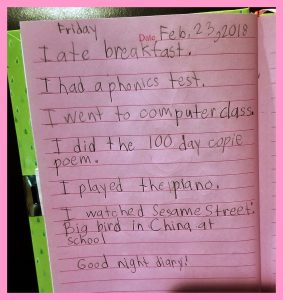 Friday
Date Feb. 23, 2018
I ate breakfast.
I had a phonics test.
I went to computer class.
I did the 100 day copie
poem.
I played the piano.
I watched Sesame Street:
Big bird in China at
school
Good night diary!